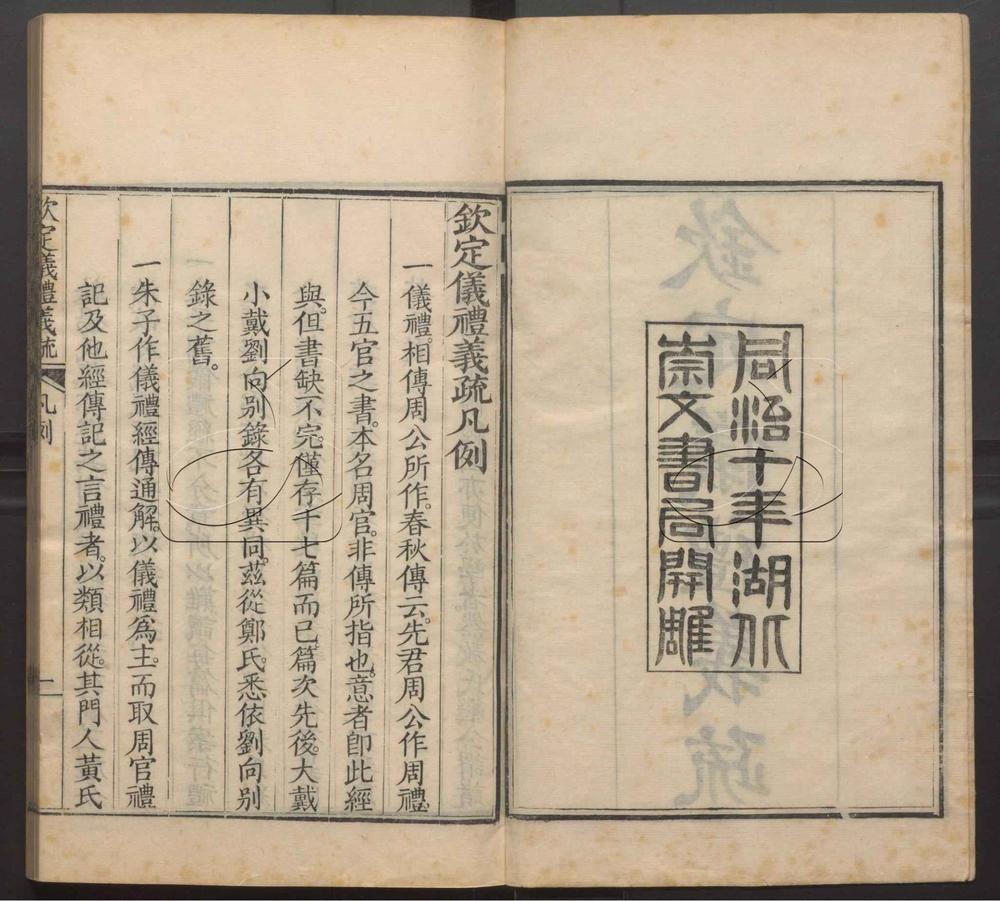 同治十年湖北
崇文書局開雕
欽定儀禮義疏凡例
一儀禮。相傳周公所作。春秋傳云。先君周公作周禮。
今五官之書。本名周官。非傳所指也。意者卽此經
與。但書缺不完。僅存十七篇而已。篇次先後。大戴
小戴劉向別錄各有異同。茲從鄭氏。悉依劉向別
錄之舊。
一朱子作儀禮經傳通解。以儀禮爲主。而取周官禮
記及他經傳記之言禮者。以類相從。其門人黃氏
欽定儀禮義疏 凡例 一